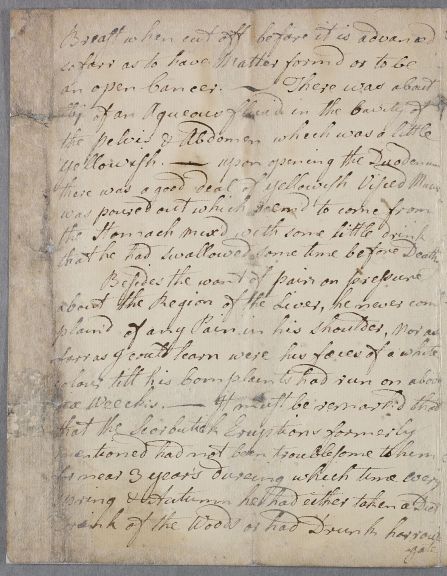 Breast when cut off before it is advanced
so farr as to have Matter form'd or to be
an open Cancer. — There was about
of an Aqueous fluid in the Cavity of
the Pelvis & Abdomen which was a little
Yellowish. — upon opening the Duodenum
there was a good deal of yellowish Viscid
was poured out which seem'd to come from
the Stomach mixed with some little drink
that he had swallowed some time before Death.
Besides the want of Pain on pressure
about the Region of the Liver, he never com
plaind of any Pain in his Shoulder, Nor as
farr as I could learn were his fæces of a white
colour till his Complaints had run on about
Weeks. — It must be remark'd that
that the Scorbutick Eruptions formerly
mentioned had not been troublesome to him
for near 3 years dureing which time every
Spring & Autumn he had either taken a Diet
Drink of the Woods or had Drunk